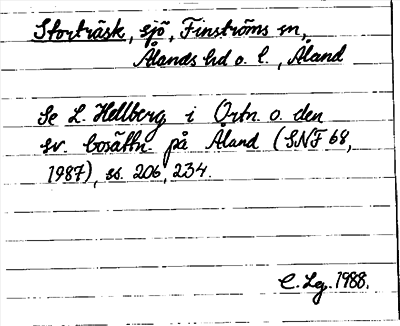 Storträsk, sjö, Finströms sn,
Ålands hd o. l., Åland
Se L. Hellberg i Ortn. o. den
sv. bosättn. på Åland (SNF 68,
1987), ss. 206, 234.
C. Leg. 1988.